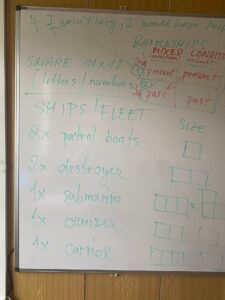 if I wasn't lazy, I would have
BATTLESHIPS
MIXED CONDITI
SQUARE 10x10
(letters / numbers)
2nd present present
3rd past past
SHIPS / FLEET
SIZE
patrol boats
2x destroyer
1x submarine
1x cruiser
1x carrier